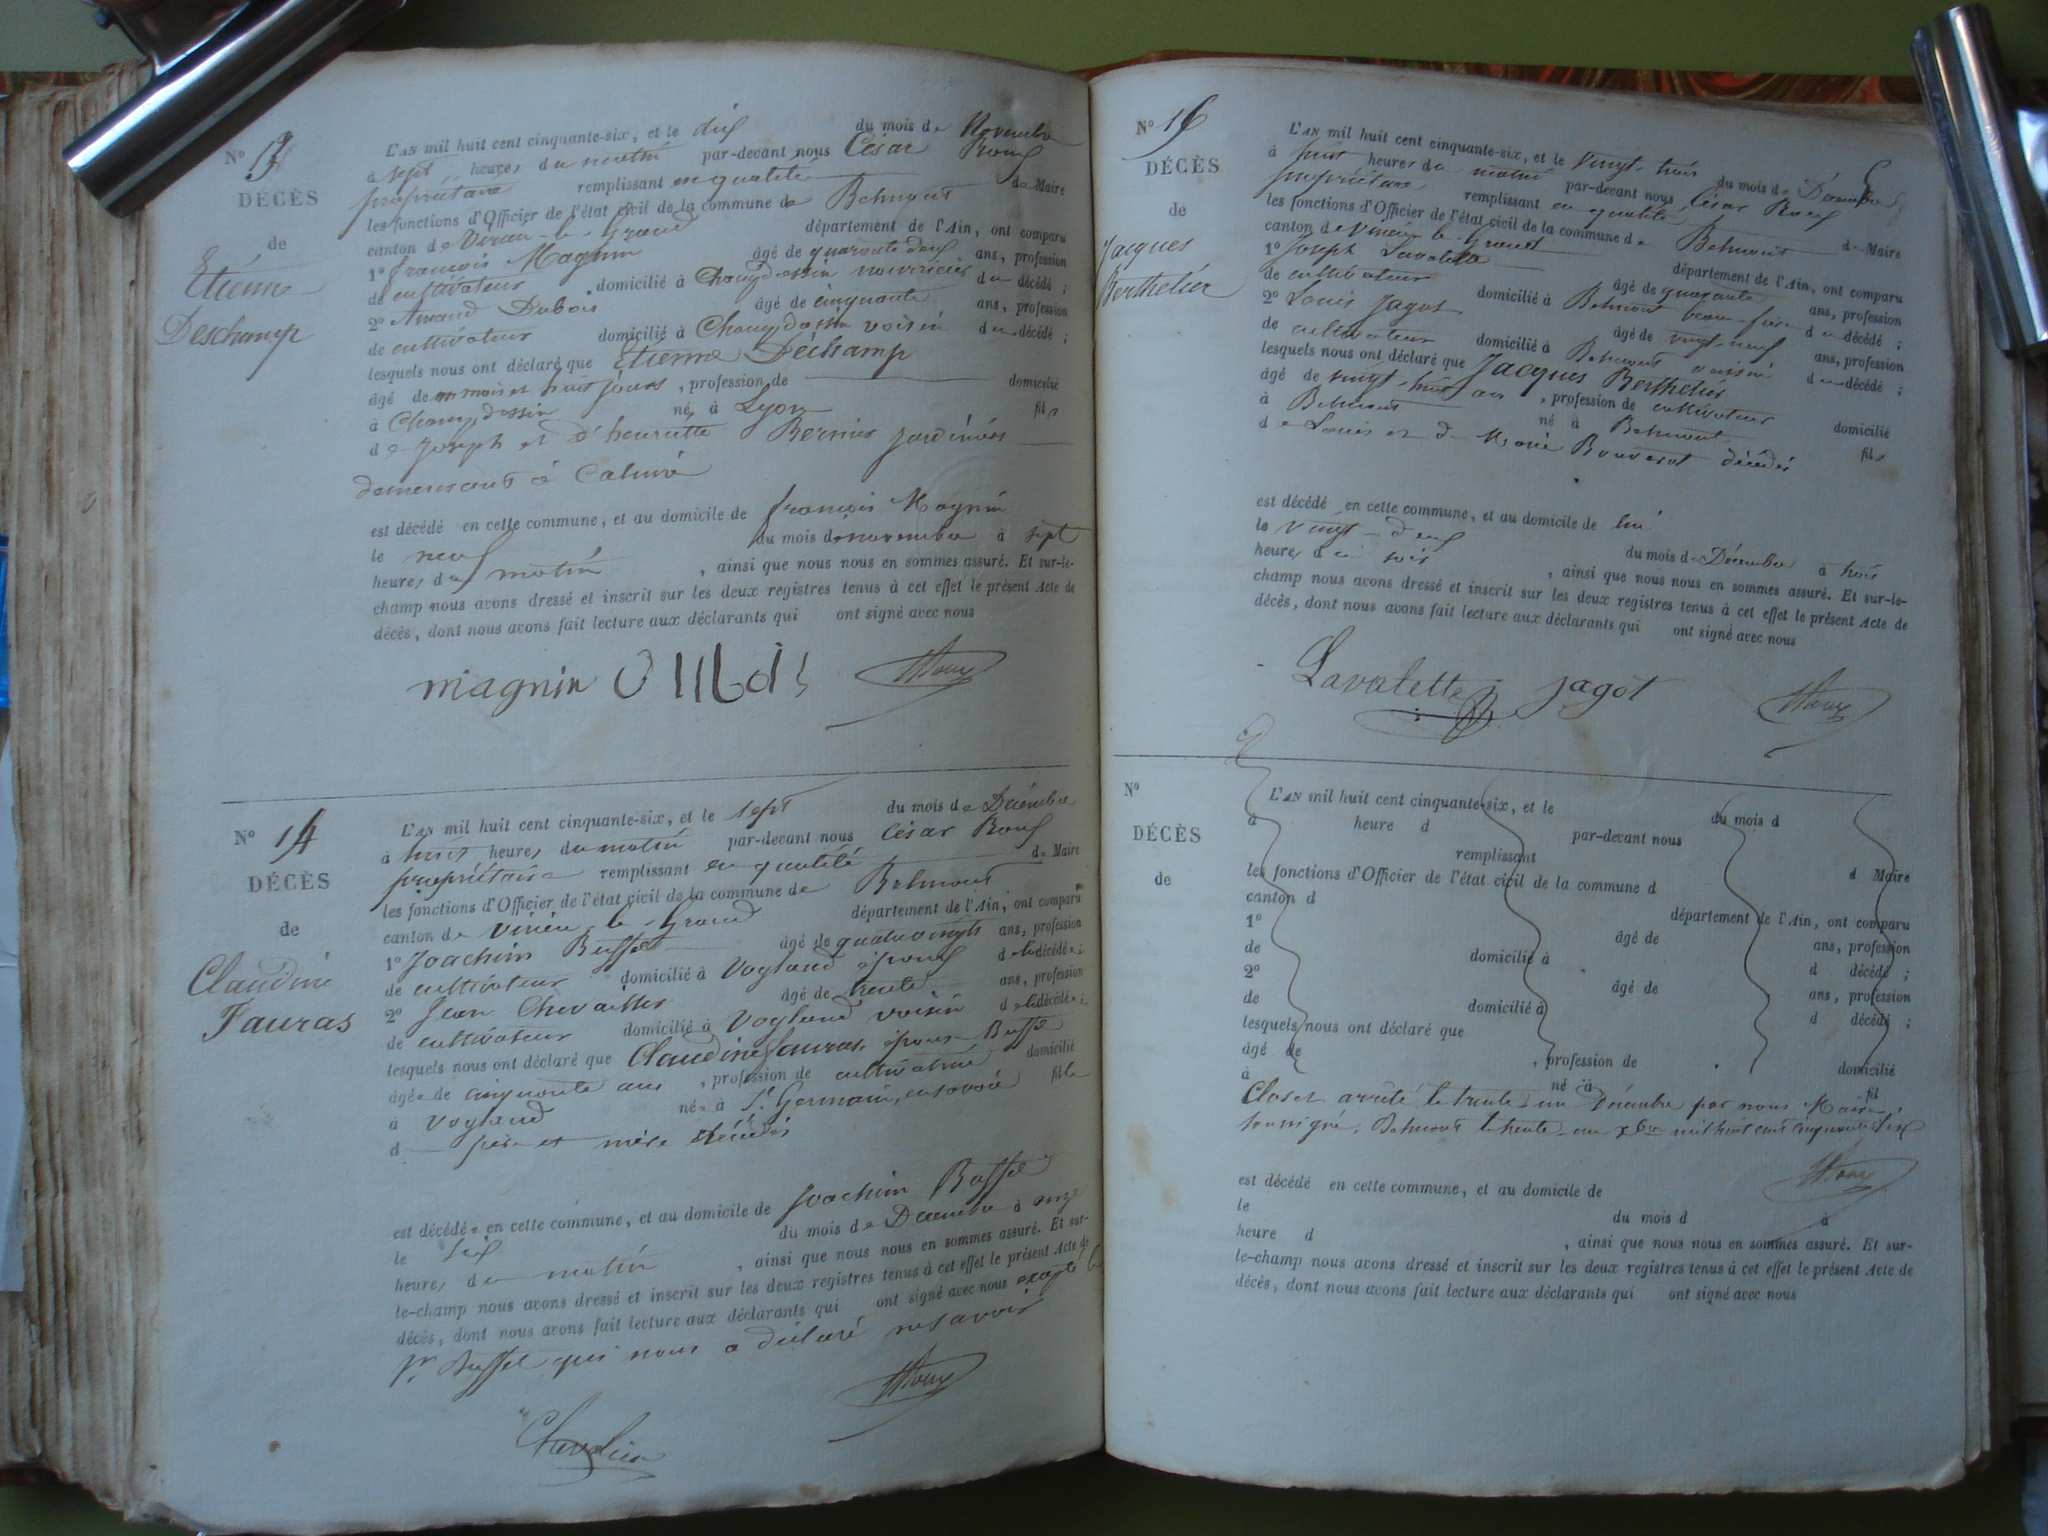 No 13
DÉCÈS
de
Etienne
Deschamp
L'AN mil huit cent cinquante-six, et le dix du mois de Novembre
à sept heures du matin par-devant nous César Roux
propriétaire remplissant en qualité de Maire
les fonctions d'Officier de l'état civil de la commune de Belmont
canton de Virieu-le-Grand département de l'Ain, ont comparu
1o françois Magnin âgé de quarante deux ans, profession
de cultivateur domicilié à Champdossin nourricier du décédé ;
2o Amand Dubois âgé de cinquante ans, profession
de cultivateur domicilié à Champdossin voisin du décédé ;
lesquels nous ont déclaré que Etienne Déchamp
âgé de un mois et huit jours, profession de domicilié
à Champdossin né à Lyon fils
de Joseph et d'henriette Bernier jardiniers
demeurant à Caluire
est décédé en cette commune, et au domicile de françois Magnin
le neuf du mois de novembre à sept
heures du matin, ainsi que nous nous en sommes assuré. Et sur-le-
champ nous avons dressé et inscrit sur les deux registres tenus à cet effet le présent Acte de
décès, dont nous avons fait lecture aux déclarants qui ont signé avec nous
magnin Roux
No 14
DÉCÈS
de
Claudine
Fauras
L'AN mil huit cent cinquante-six, et le sept du mois de Décembre
à heures du matin par-devant nous César Roux
propriétaire remplissant en qualité de Maire
les fonctions d'Officier de l'état civil de la commune de Belmont
canton de Virieu-le-Grand département de l'Ain, ont comparu
1o Joachim Buffet âgé de quatrevingts ans, profession
de cultivateur domicilié à Vogland époux de la décédée ;
2o Jean Chevallier âgé de trente ans, profession
de cultivateur domicilié à Vogland voisin de la décédée ;
lesquels nous ont déclaré que Claudine Fauras épouse Buffet
âgée de cinquante ans, profession de cultivatrice domicilié
à Vogland née à St Germain, en savoie fille
d père et mère décédés
est décédée en cette commune, et au domicile de Joachim Buffet
le six du mois de Décembre à onze
heures du matin, ainsi que nous nous en sommes assuré. Et sur-
le-champ nous avons dressé et inscrit sur les deux registres tenus à cet effet le présent Acte de
décès, dont nous avons fait lecture aux déclarants qui ont signé avec nous excepté le
Sr Buffet qui nous a déclaré ne savoir
Roux
Chevalier
No 15
DÉCÈS
de
Jacques
Berthelier
L'AN mil huit cent cinquante-six, et le vingt-trois du mois de Décembre
à huit heures du matin par-devant nous César Roux
propriétaire remplissant en qualité de Maire
les fonctions d'Officier de l'état civil de la commune de Belmont
canton de Virieu-le-Grand département de l'Ain, ont comparu
1o Joseph Lavalette âgé de quarante ans, profession
de cultivateur domicilié à Belmont beau-frère du décédé ;
2o Louis Jagot âgé de vingt-neuf ans, profession
de cultivateur domicilié à Belmont voisin du décédé ;
lesquels nous ont déclaré que Jacques Berthelier
âgé de vingt-huit ans, profession de cultivateur domicilié
à Belmont né à Belmont fils
de Louis et de Marie Bouverat décédés
est décédé en cette commune, et au domicile de lui
le vingt-deux du mois de Décembre à trois
heures du soir, ainsi que nous nous en sommes assuré. Et sur-le-
champ nous avons dressé et inscrit sur les deux registres tenus à cet effet le présent Acte de
décès, dont nous avons fait lecture aux déclarants qui ont signé avec nous
Lavalette jagot Roux
No
DÉCÈS
de
L'AN mil huit cent cinquante-six, et le du mois d
à heure d par-devant nous
remplissant d Maire
les fonctions d'Officier de l'état civil de la commune d
canton d département de l'Ain, ont comparu
1o âgé de ans, profession
de domicilié à d décédé ;
2o âgé de ans, profession
de domicilié à d décédé ;
lesquels nous ont déclaré que
âgé de , profession de domicilié
à né à fil
Clos et arrêté le trente-un Décembre par nous Maire
soussigné. Belmont le trente-un Xbre mil huit cent cinquante six
Roux
est décédé en cette commune, et au domicile de
le du mois d à
heure d , ainsi que nous nous en sommes assuré. Et sur-
le-champ nous avons dressé et inscrit sur les deux registres tenus à cet effet le présent Acte de
décès, dont nous avons fait lecture aux déclarants qui ont signé avec nous